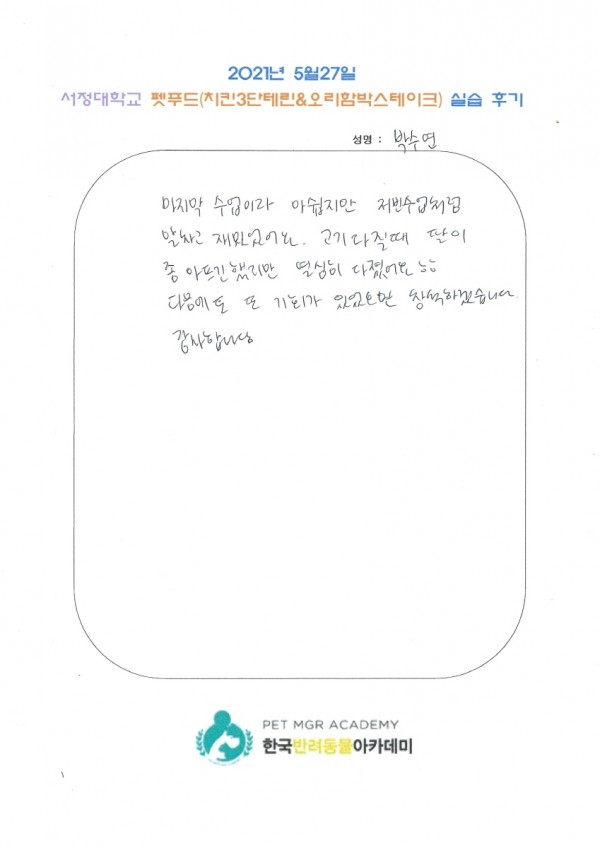 2021년 5월27일
서정대학교 펫푸드(치킨3단테린&오리함박스테이크) 실습 후기
성명 : 박수연
마지막 수업이라 아쉽지만 저번수업처럼
알차고 재미있었어요. 고기 다질때 팔이
좀 아프긴 했지만 열심히 다졌어요 ㅎㅎ
다음에도 또 기회가 있었으면 참석하겠습니다.
감사합니당
PET MGR ACADEMY
한국반려동물아카데미